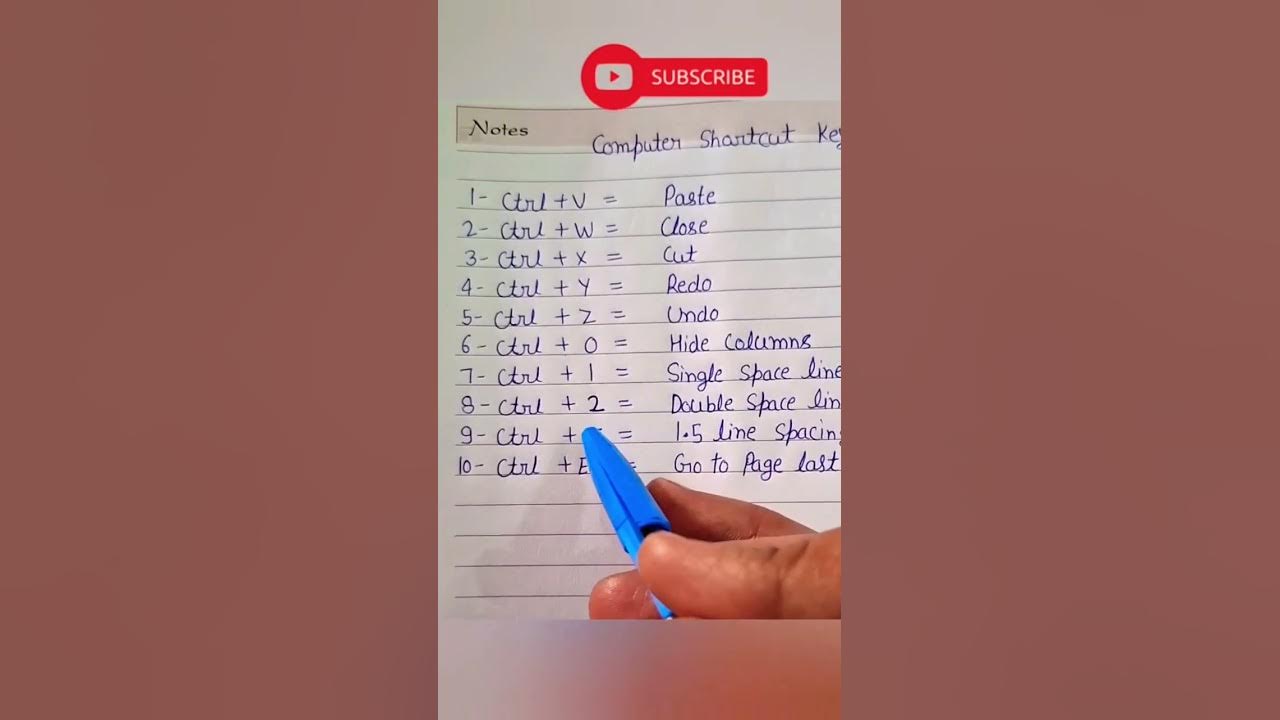 SUBSCRIBE
Notes
Computer Shartcut Key
1- Ctrl + V = Paste
2- Ctrl + W = Close
3- Ctrl + X = Cut
4- Ctrl + Y = Redo
5- Ctrl + Z = Undo
6- Ctrl + 0 = Hide Columns
7- Ctrl + 1 = Single Space line
8- Ctrl + 2 = Double Space lin
9- Ctrl + = 1.5 line Spacing
10- Ctrl + E = Go to Page last